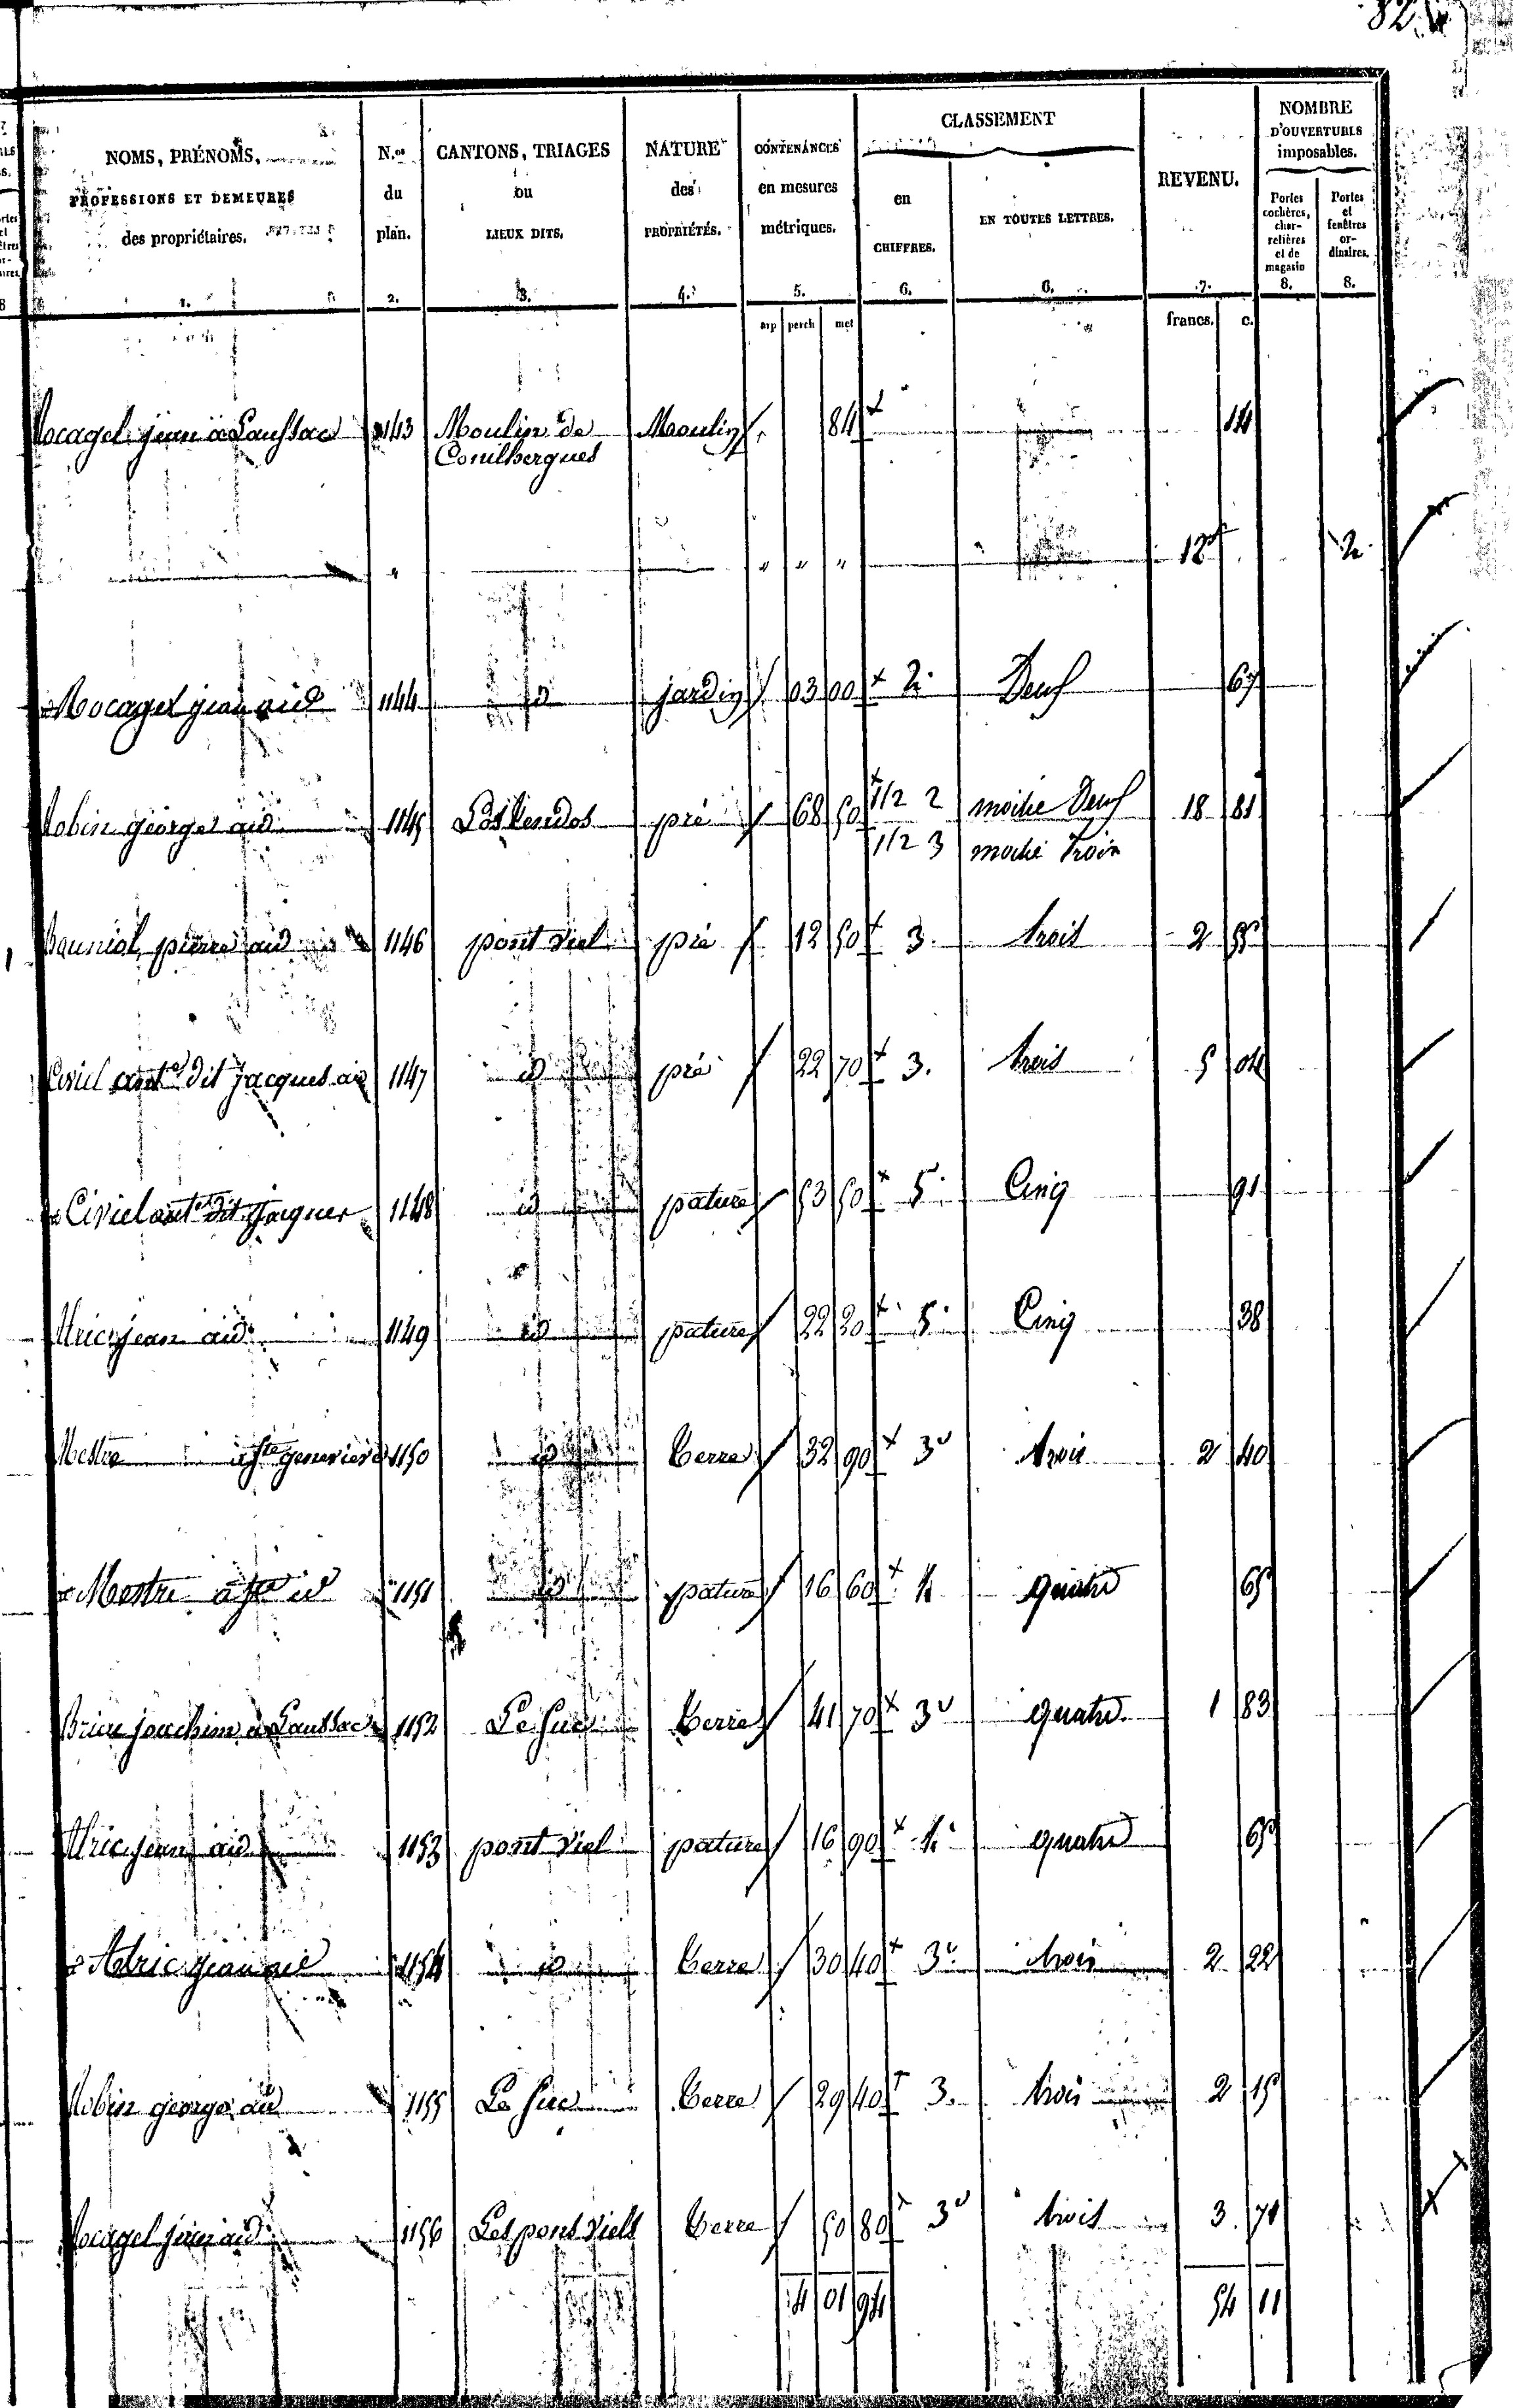 82.
NOMS, PRÉNOMS,
PROFESSIONS ET DEMEURES
des propriétaires.
1.
N.os
du
plan.
2.
CANTONS, TRIAGES
ou
LIEUX DITS.
3.
NATURE
des
PROPRIÉTÉS.
4.
CONTENANCES
en mesures
métriques.
5.
CLASSEMENT
en
CHIFFRES.
6.
EN TOUTES LETTRES.
6.
REVENU.
7.
NOMBRE
D'OUVERTURES
imposables.
Portes
cochères,
char-
retières
et de
magasin
8.
Portes
et
fenêtres
or-
dinaires.
8.
arp perch met francs. c.
Mocagel jean à Laussac 1143 Moulin de Moulin 84 14
Conilhergues
" " " " 12 2
Mocagel jean aid 1144 id jardin 03 00 2 Deux 67
Robin george aid 1145 pré 68 50 1/2 2 moitié Deux 18 81
1/2 3 moitié trois
pierre aid 1146 pont viel pré 12 50 3. trois 2 55
dit jacques aid 1147 id pré 22 70 3. trois 5 04
dit jacques 1148 id pature 53 50 5 Cinq 91
Alric jean aid 1149 id pature 22 20 5 Cinq 38
Mestre à Ste genevieve 1150 id terre 32 90 3 trois 2 40
Mestre à Ste id 1151 id pature 16 60 4 quatre 65
joachim à Laussac 1152 Le Suc terre 41 70 3 quatre 1 83
Alric jean aid 1153 pont viel pature 16 90 4 quatre 65
Alric jean aid 1154 id terre 30 40 3 trois 2 22
Robin george aid 1155 Le Suc terre 29 40 3. trois 2 15
Mocagel jean aid 1156 Les pont viels terre 50 80 3 trois 3 71
4 01 94 54 11